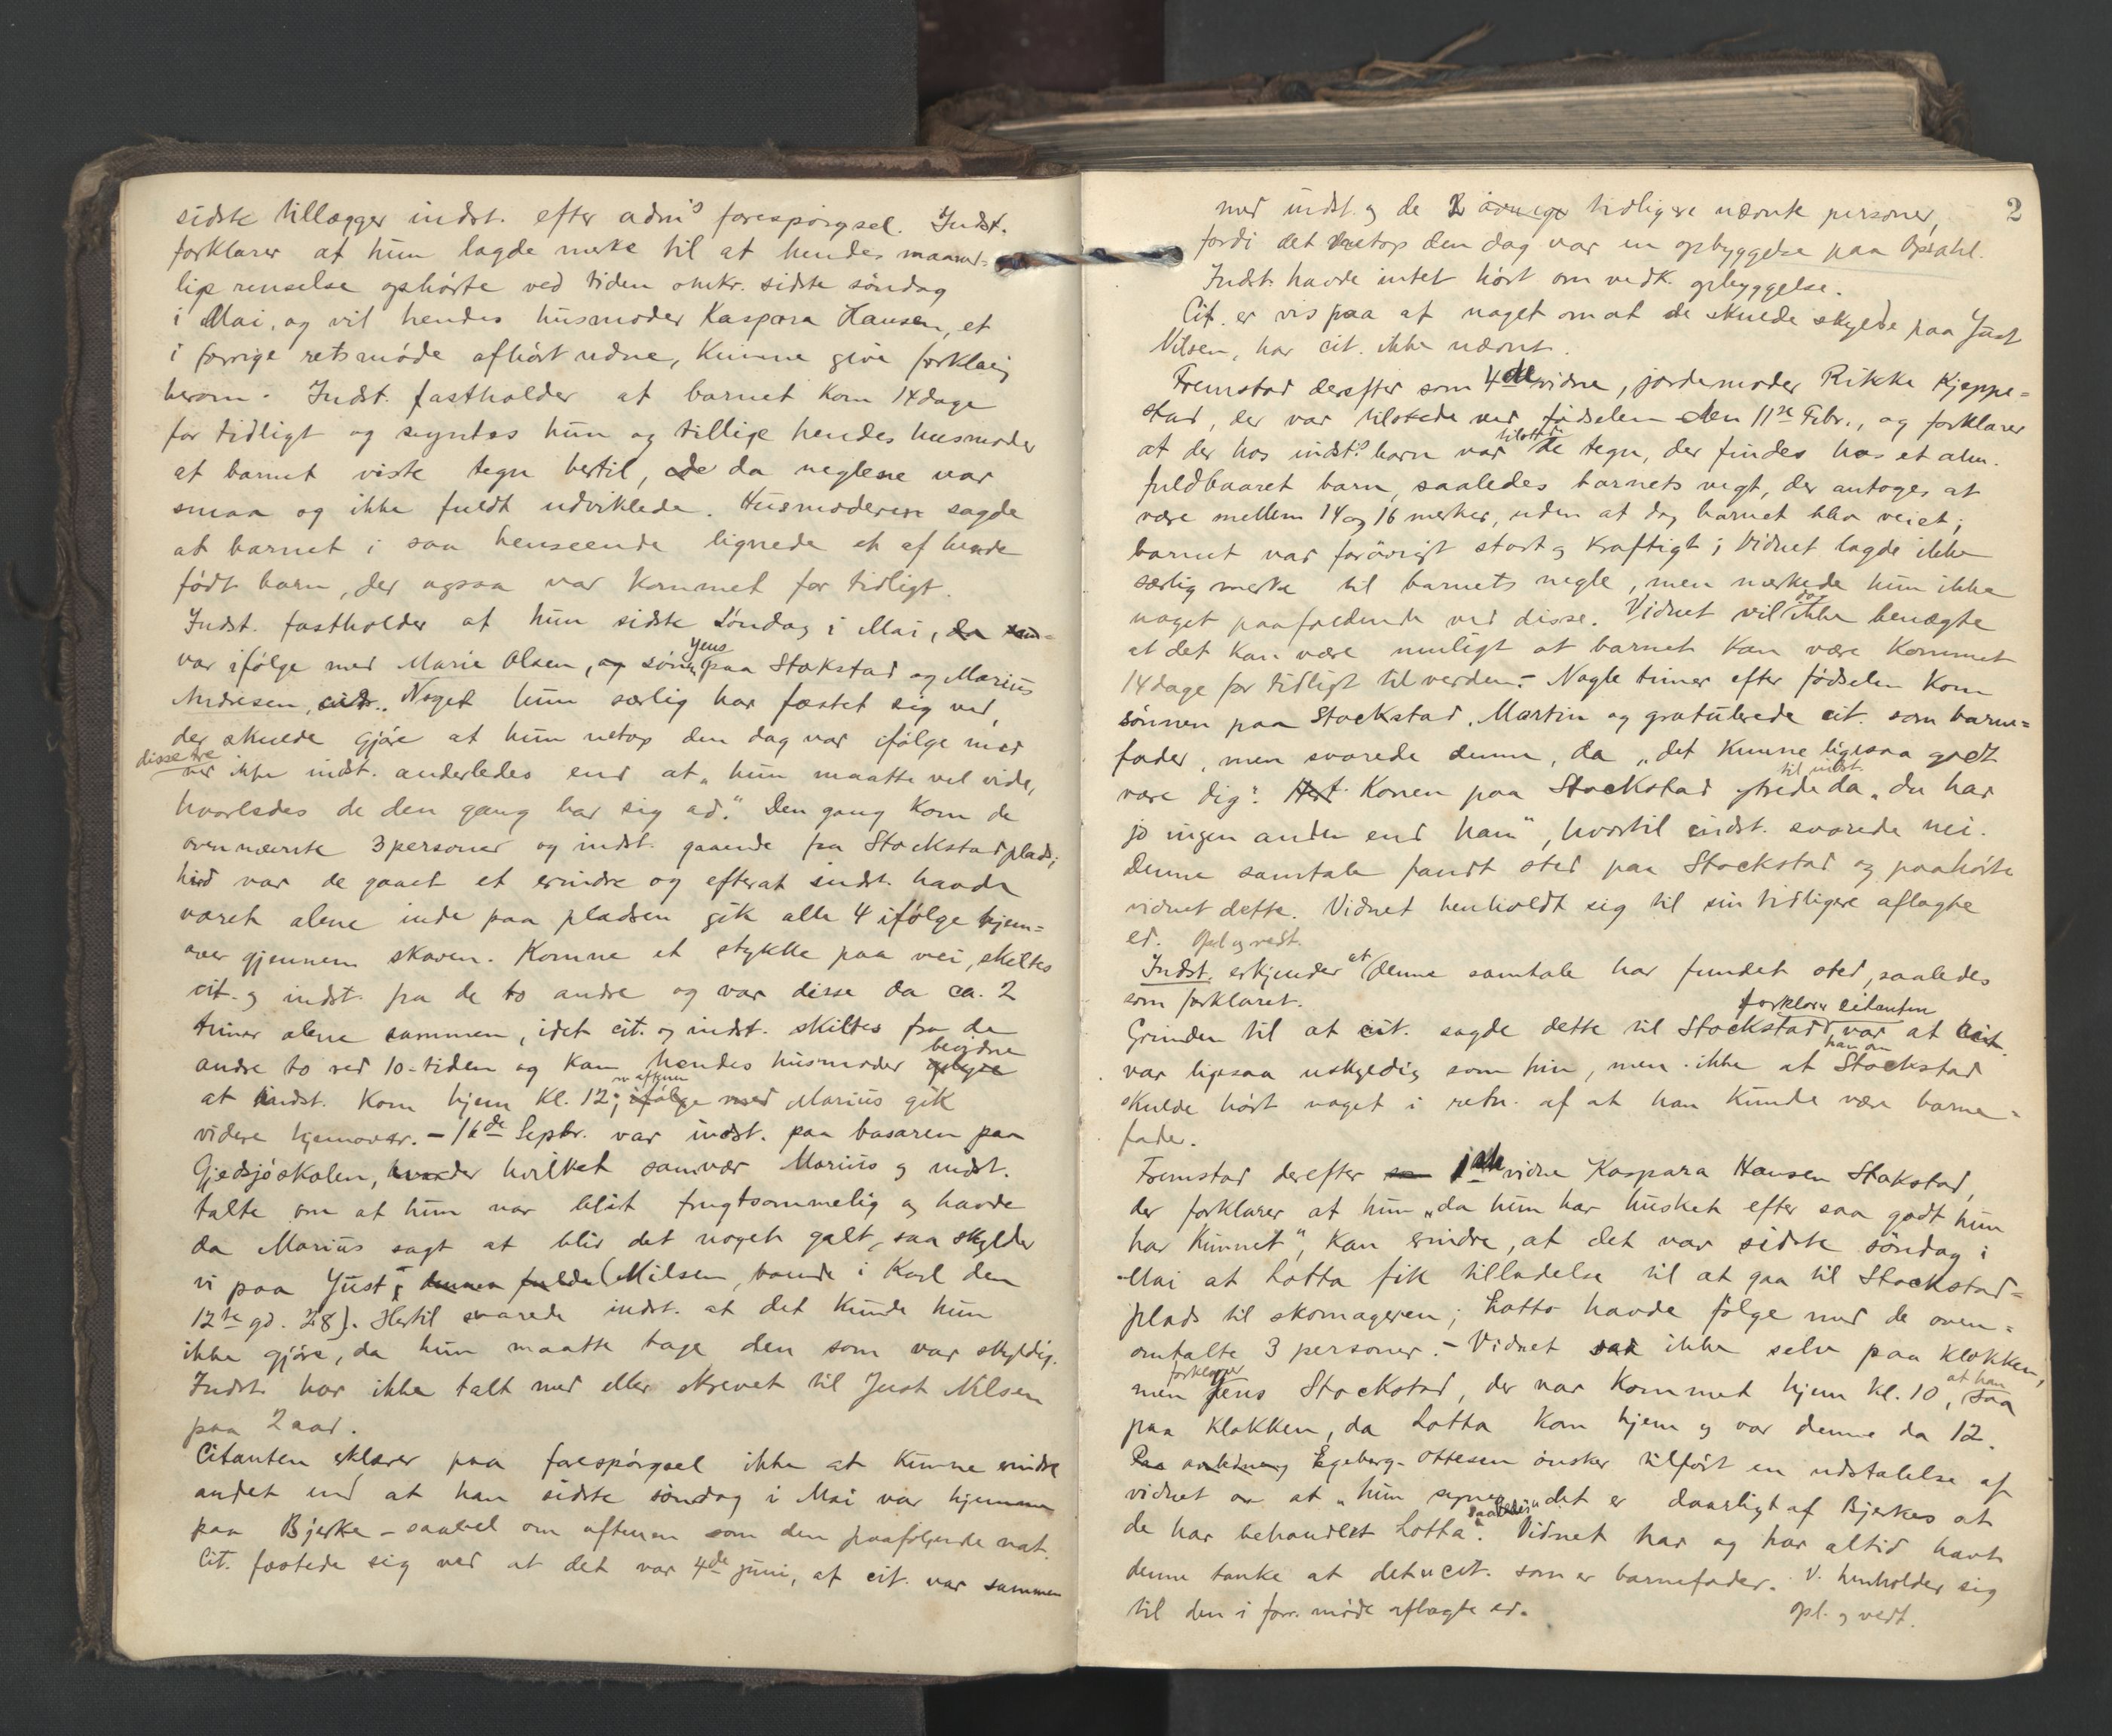 sidste tillægger indst. efter adm's forespørgsel. Indst.
forklarer at hun lagde merke til at hendes maaned-
lige renselse ophørte ved tiden omkr. sidste søndag
i Mai, og vil hendes husmoder Kaspara Hansen, et
i forrige retsmøde afhørt vidne, kunne give forklaring
herom. Indst. fastholder at barnet kom 14 dage
for tidligt og syntes hun og tillige hendes husmoder
at barnet viste tegn hertil, da neglene var
smaa og ikke fuldt udviklede. Husmoderen sagde
at barnet i saa henseende lignede et af hende
født barn, der ogsaa var kommet for tidligt.
Indst. fastholder at hun sidste Søndag i Mai,
var ifølge med Marie Olsen, sønnen Jens paa Stokstad og Marius
Andresen, Noget hun særlig har fæstet sig ved,
der skulde gjøre at hun netop den dag var ifølge med
disse tre
ved ikke indst. anderledes end at "hun maatte vel vide,
hvorledes de den gang bar sig ad." Den gang kom de
ovennævnte 3 personer og indst. gaaende fra Stockstadplads;
hid var de gaaet et erinde og efterat indst. havde
været alene inde paa pladsen gik alle 4 ifølge hjem-
over gjennem skoven. Komne et stykke paa vei, skiltes
cit. og indst. fra de to andre og var disse da ca. 2
timer alene sammen, idet cit. og indst. skiltes fra de
andre to ved 10-tiden og kan hendes husmoder bevidne
at indst. kom hjem kl. 12; Marius gik
videre hjemover. - 16de Septbr. var indst. paa basaren paa
Gjedsjøskolen, under hvilket samvær Marius og indst.
talte om at hun var blit frugtsommelig og havde
da Marius sagt at blir det noget galt, saa skylder
vi paa Just Nilsen, boende i Karl den
12te gd. 28). Hertil svarede indst. at det kunde hun
ikke gjøre, da hun maatte tage den som var skyldig.
Indst. har ikke talt med eller skrevet til Just Nilsen
paa 2 aar.
Citanten erklærer paa forespørgsel ikke at kunne erindre
andet end at han sidste søndag i Mai var hjemme
paa Bjerke - saavel om aftenen som den paafølgende nat.
Cit. fæstede sig ved at det var 4de juni, at cit. var sammen
2
med indst. og de 2 øvrige tidligere nævnte personer,
fordi det netop den dag var en opbyggelse paa Opsahl.
Indst. havde intet hørt om vedk. opbyggelse.
Cit. er vis paa at noget om at de skulde skylde paa Just
Nilsen, har cit. ikke nævnt.
Fremstod derefter som 4de vidne, jordemoder Rikke Kjeppe-
stad, der var tilstede ved fødselen den 11te Febr., og forklarer
at der hos indst's barn var tilstede de tegn, der findes hos et alm.
fuldbaaret barn, saaledes barnets vegt, der antoges at
være mellem 14 og 16 merker, uden at dog barnet blev veiet;
barnet var forøvrigt stort og kraftigt; Vidnet lagde ikke
særlig merke til barnets negle, men merkede hun ikke
noget paafaldende ved disse. Vidnet vil dog ikke benægte
at det kan være muligt at barnet kan være kommet
14 dage for tidligt til verden. - Nogle timer efter fødselen kom
sønnen paa Stockstad, Martin og gratulerede cit. som barne-
fader, men svarede denne, da "det kunne ligesaa godt
være dig". Konen paa Stockstad ytrede da til indst. "du har
jo ingen anden end han", hvortil indst. svarede nei.
Denne samtale fandt sted paa Stockstad og paahørte
vidnet dette. Vidnet henholdt sig til sin tidligere aflagte
ed. Opl og vedt.
Indst. erkjender at denne samtale har fundet sted, saaledes
som forklaret.
Grunden til at cit. sagde dette til Stockstad, forklarer citanten var at cit.
var ligesaa uskyldig som hin, men ikke at han om Stockstad
skulde hørt noget i retn. af at han kunde være barne-
fader.
Fremstod derefter 1ste vidne Kaspara Hansen Stokstad,
der forklarer at hun "da hun har husket efter saa godt hun
har kunnet", kan erindre, at det var sidste søndag i
Mai at Lotta fik tilladelse til at gaa til Stockstad-
plads til skomageren; Lotta havde følge med de oven-
omtalte 3 personer. - Vidnet saa ikke selv paa klokken,
men forklarer Jens Stockstad, der var kommet hjem kl. 10, at han saa
paa klokken, da Lotta kom hjem og var denne da 12.
Egeberg-Ottesen ønsker tilført en udtalelse af
vidnet at "hun synes det er daarligt af Bjerkes at
de har behandlet Lotta saaledes". Vidnet har og har altid havt
denne tanke at det er cit. som er barnefader. V. henholder sig
til den i forr. møde aflagte ed. opl. og vedt.